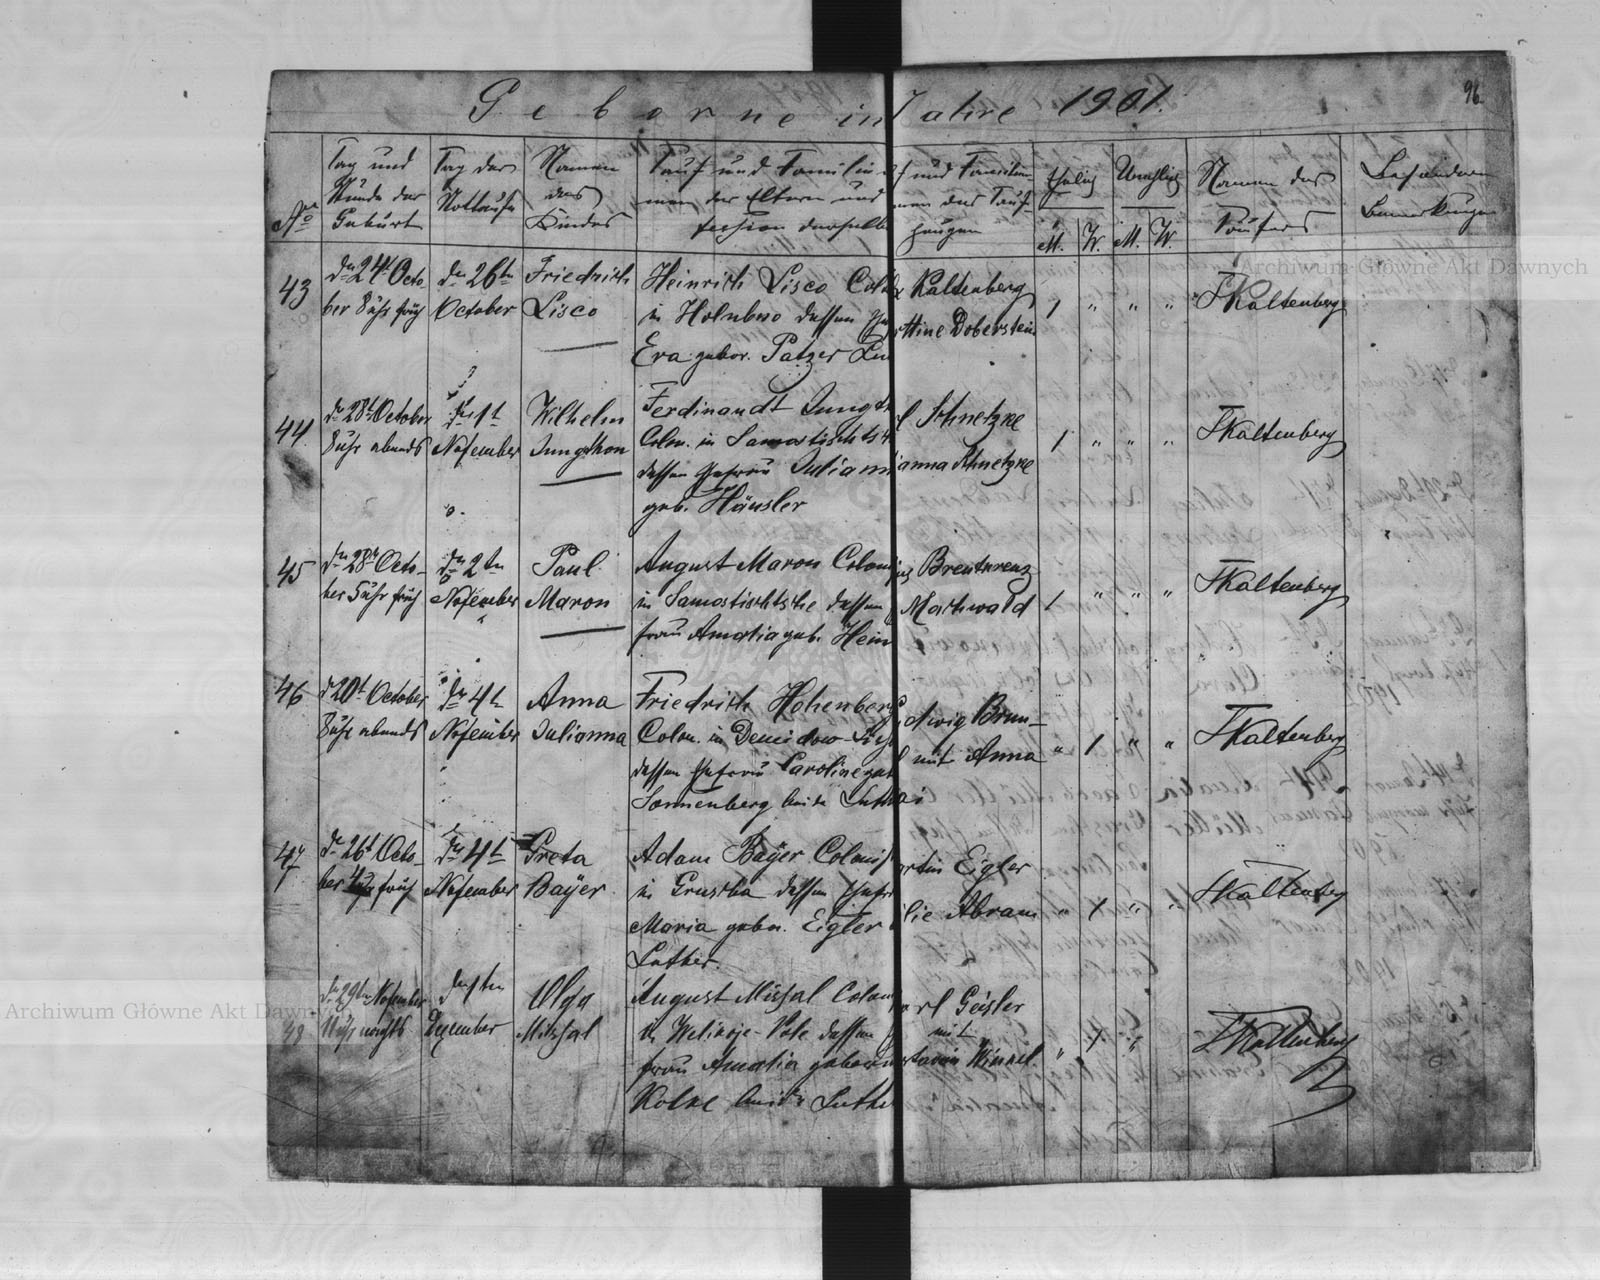 Geborne im Jahre 1901.
96
No
Tag und Stunde der Geburt
Tag der Nottaufe
Namen des Kindes
Tauf und Familien
men der Eltern und
fession derselbe
f und Familien
men der Tauf-
zeugen
Ehelig
Unehlig
M. W. M. W.
Namen des Taufers
Besondere Bemerkungen
43
den 24t Octo-
ber 8 uhr früh
den 26ten
October
Friedrich
Lisco
Heinrich Lisco Colo
in Holubno dessen Ehe
Eva gebor. Patzer Lu
Kaltenberg
ttine Doberstein
1 " " "
F Kaltenberg
44
den 28t October
8 uhr abends
den 1t
Nofember
Wilhelm
Jungthon
Ferdinandt Jungt
Colon. in Samostischts
dessen Ehefrau Julian
geb. Häusler
l Schnetzke
ianna Schnetzke
1 " " "
F Kaltenberg
45
den 28t Octo-
ber 5 uhr früh
den 2ten
Nofember
Paul
Maron
August Maron Coloni
in Samostischtsche dessen
frau Amalia geb. Hein
Brentkreuz
Machwald
1 " " "
F Kaltenberg
46
d 20t October
8 uhr abends
den 4t
Nofember
Anna
Julianna
Friedrich Hohenberg
Colon. in Demidow-
dessen Ehefrau Caroline geb
Sonnenberg beide Luth
dwig Brun-
mit Anna
" 1 " "
F Kaltenberg
47
den 26t Octo-
ber 4 uhr früh
den 4t
Nofember
Greta
Bayer
Adam Bayer Colonis
in Gruska dessen Ehefr
Maria gebor. Eigler
Luther.
artin Eigler
ilie Abram
" 1 " "
F Kaltenberg
48
den 29ten Nofember
11 uhr nachts
den 1ten
Dezember
Olga
Mikschal
August Mischal Colon
in Welikoje-Pole dessen
frau Amalia geborn
Kolke beide Luthe
arl Geisler
mit
stawin Winkel.
" 1 "
F Kaltenberg
Archiwum Główne Akt Dawnych
Archiwum Główne Akt Dawnych